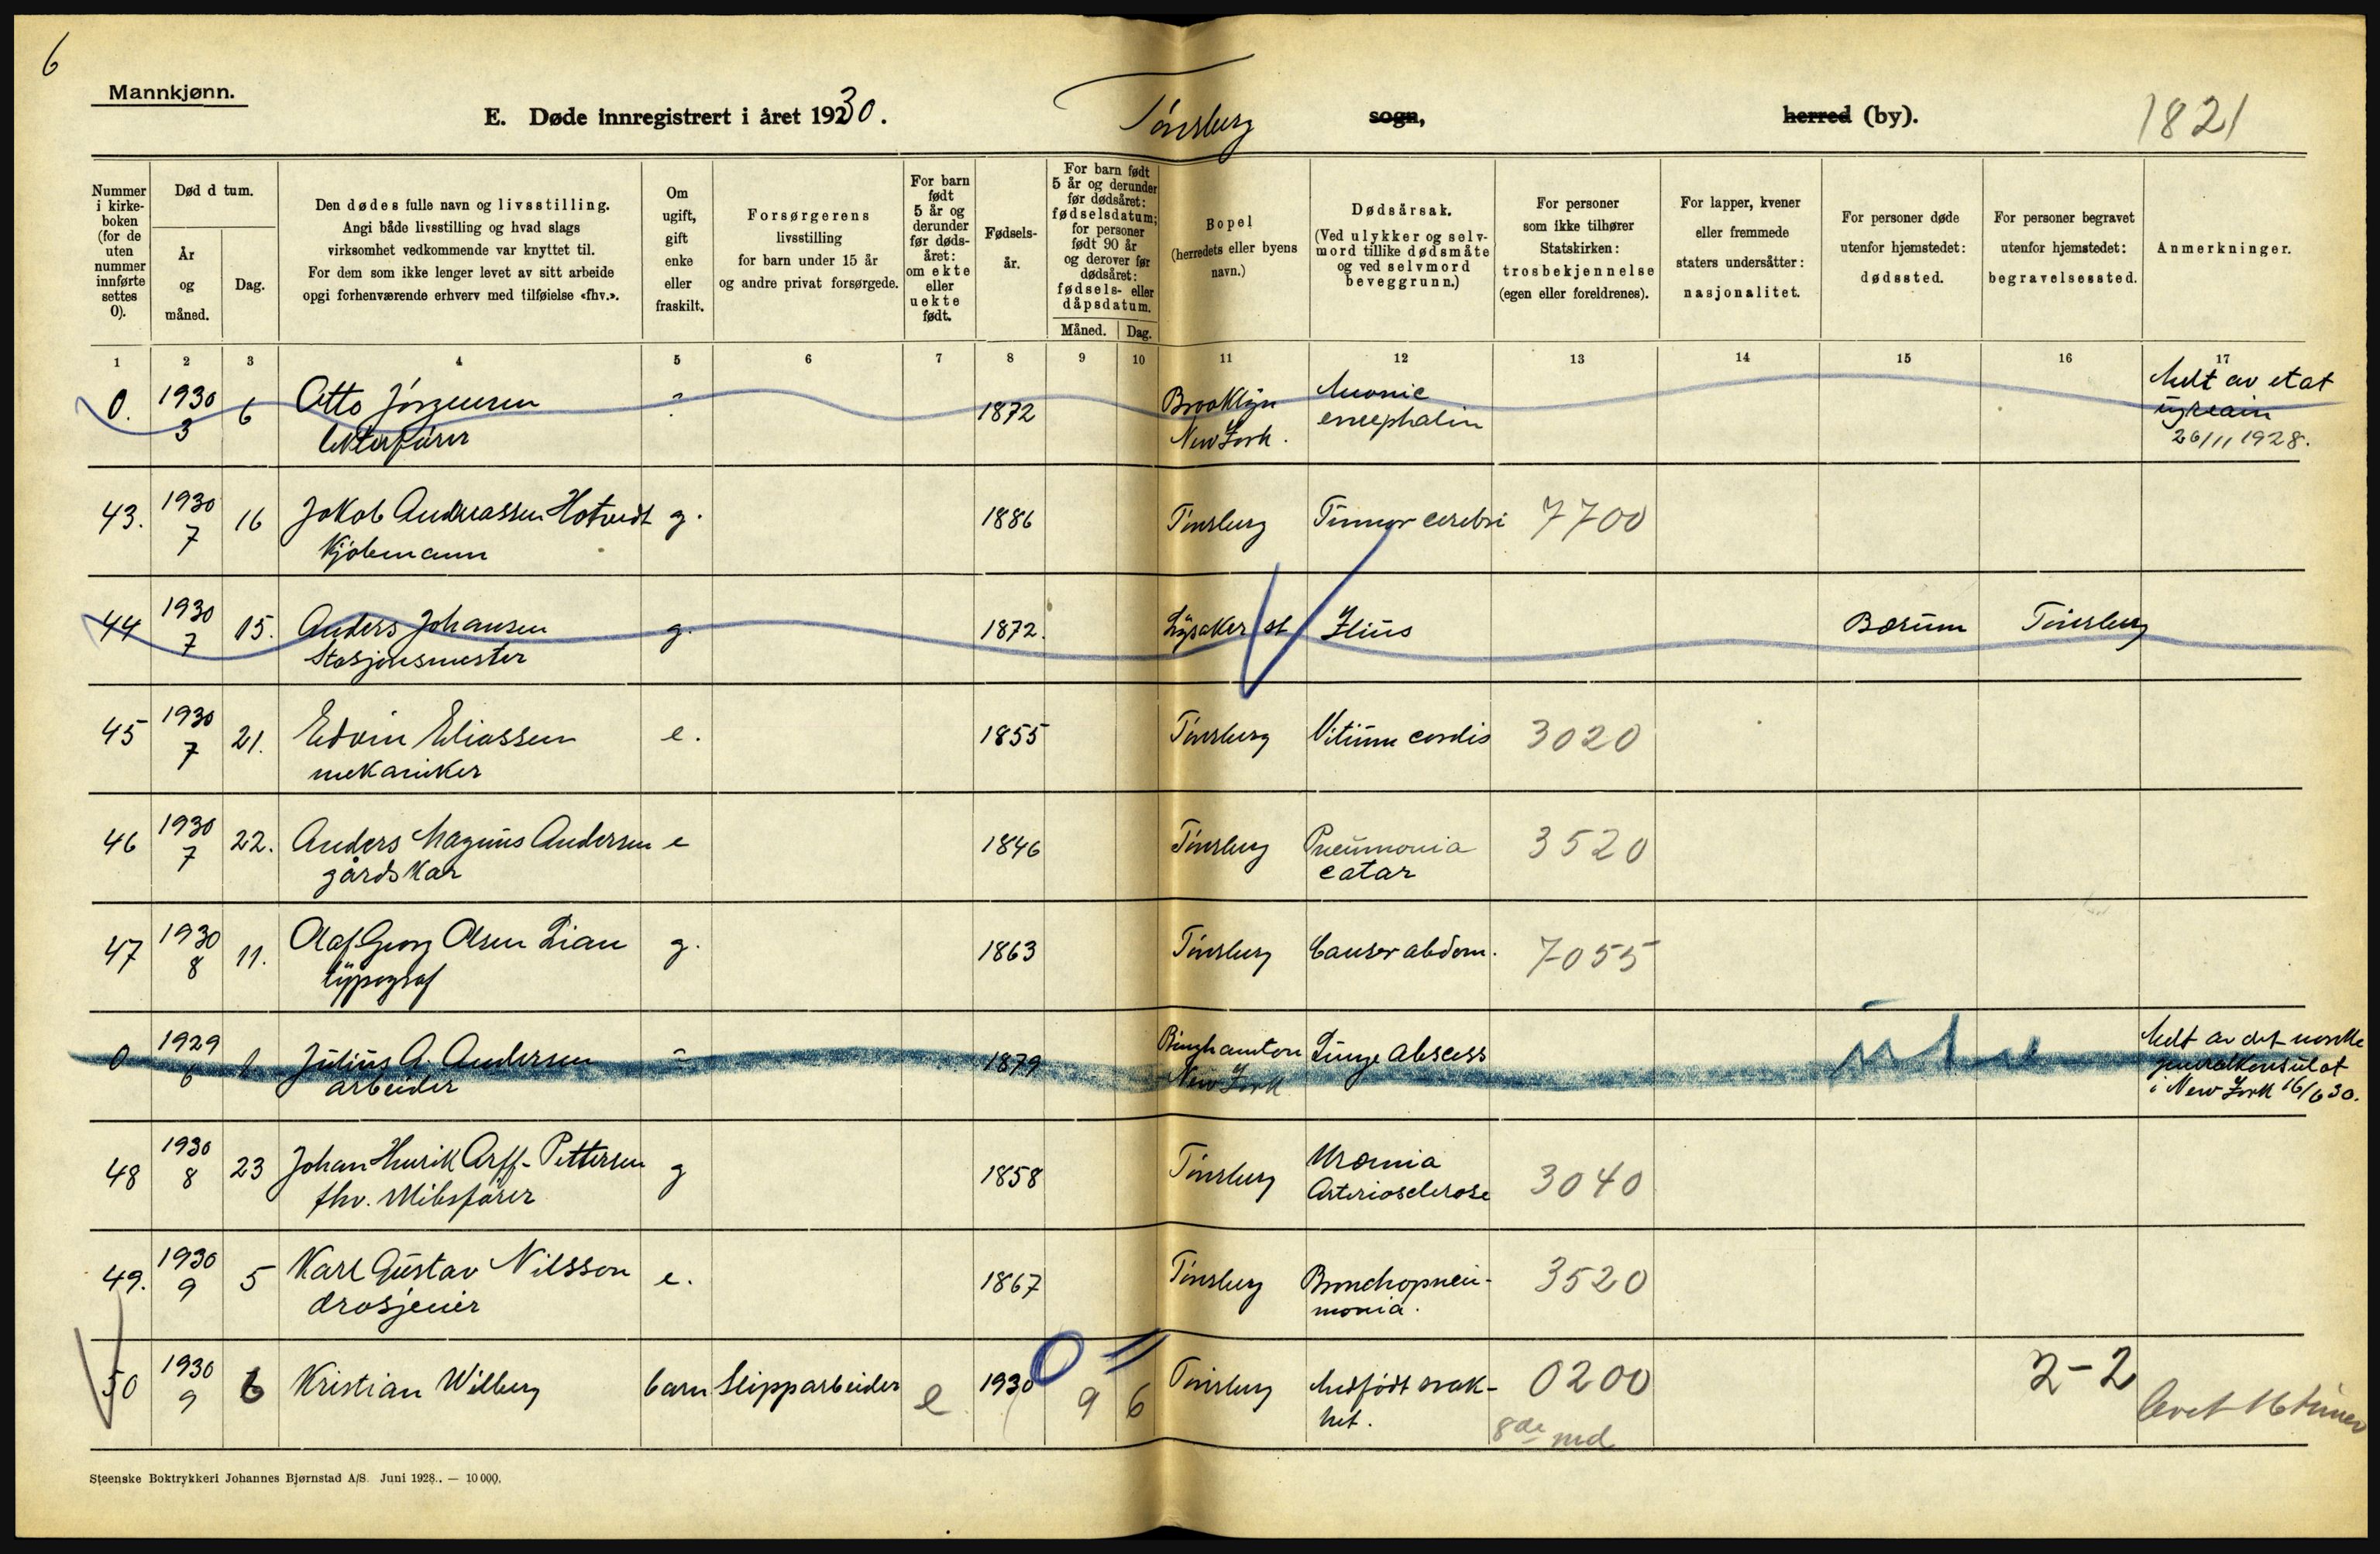 6
Mannkjønn.
E. Døde innregistrert i året 1930.
Tønsberg
sogn,
herred (by).
1821
Nummer i kirke-boken (for de uten nummer innførte settes 0).
Død d tum.
År og måned.
Dag.
Den dødes fulle navn og livsstilling.
Angi både livsstilling og hvad slags
virksomhet vedkommende var knyttet til.
For dem som ikke lenger levet av sitt arbeide
opgi forhenværende erhverv med tilføielse «fhv.».
Om ugift, gift enke eller fraskilt.
Forsørgerens
livsstilling
for barn under 15 år
og andre privat forsørgede.
For barn født 5 år og derunder før døds-året: om ekte eller uekte født.
Fødsels-
år.
For barn født 5 år og derunder før dødsåret: fødselsdatum; for personer født 90 år og derover før dødsåret: fødsels- eller dåpsdatum.
Måned. Dag.
Bopel
(herredets eller byens
navn.)
Dødsårsak.
(Ved ulykker og selv-
mord tillike dødsmåte
og ved selvmord
beveggrunn.)
For personer
som ikke tilhører
Statskirken:
trosbekjennelse
(egen eller foreldrenes).
For lapper, kvener
eller fremmede
staters undersåtter:
nasjonalitet.
For personer døde
utenfor hjemstedet:
dødssted.
For personer begravet
utenfor hjemstedet:
begravelsessted.
Anmerkninger.
1 2 3 4 5 6 7 8 9 10 11 12 13 14 15 16 17
0. 1930 3 6 Otto Jørgensen ? 1872 Brooklyn New York. encephalin Melt av etat
26/11 1928.
43. 1930 7 16 Jakob Andreassen Hotvedt g. 1886 Tønsberg Tumor cerebri 7700
Kjøbmann
44 1930 7 15. Anders Johansen g. 1872. Lysaker st Ileus Bærum Tønsberg
Stasjonsmester
45 1930 7 21. Edvin Eliassen e. 1855 Tønsberg Vitium cordis 3020
mekaniker
46 1930 7 22. Anders Magnus Andersen e 1846 Tønsberg Pneumonia catar 3520
gårdskar
47 1930 8 11. Olaf Georg Olsen Lian g. 1863 Tønsberg Cancer abdom. 7055
typograf
0 1929 6 Julius A. Andersen - 1879 Binghamton New York Lunge abscess Melt av det norske
arbeider generalkonsulat
i New York 16/6 30.
48 1930 8 23 Johan Henrik Arff-Pettersen g 1858 Tønsberg Uræmia Arteriosclerose 3040
fhv. skibsfører
49. 1930 9 5 Karl Gustav Nilsson e. 1867 Tønsberg Bronchopneu-
monia. 3520
drosjeeier
50 1930 9 6 Kristian Wilberg barn Slipparbeider e 1930 9 6 Tønsberg Medfødt svak-
het. 0200 2-2
8de md levet 16 timer
Steenske Boktrykkeri Johannes Bjørnstad A/S. Juni 1928.. — 10 000.